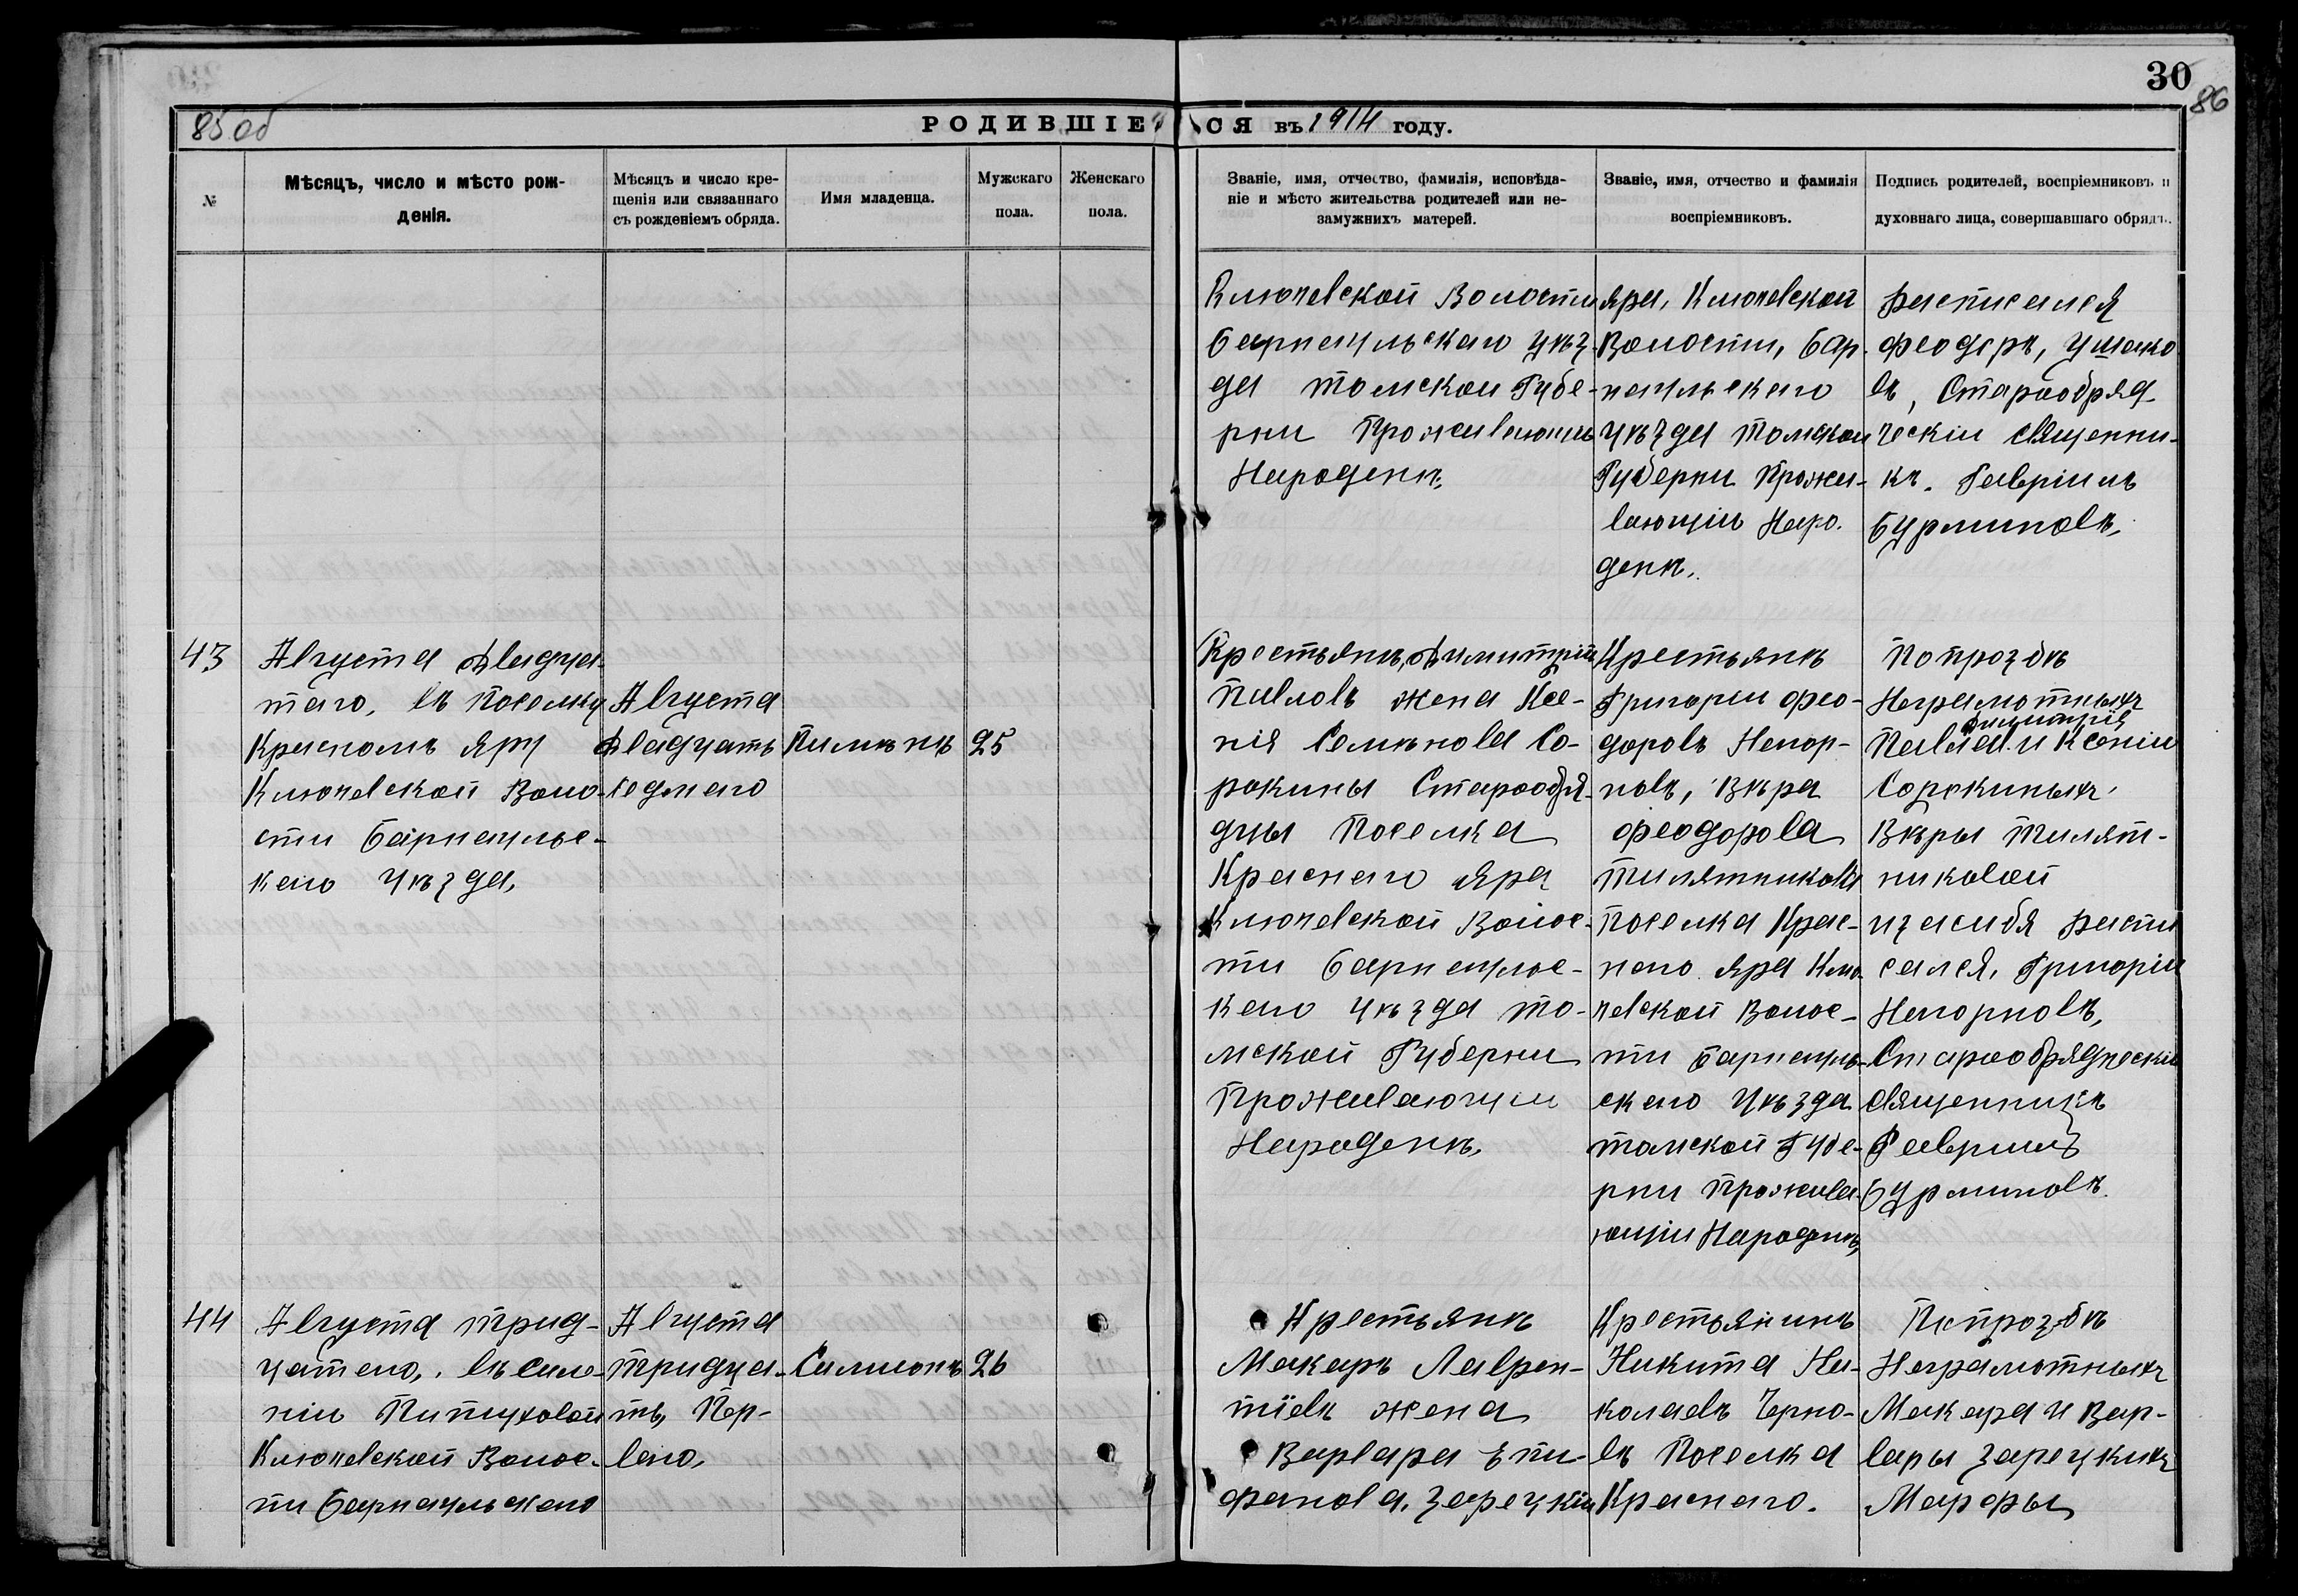 30
86
85 об
РОДИВШІЕСЯ въ 1914 году.
№
Мѣсяцъ, число и мѣсто рож-
денія.
Мѣсяцъ и число кре-
щенія или связаннаго
съ рожденіемъ обряда.
Имя младенца.
Мужскаго
пола.
Женскаго
пола.
Званіе, имя, отчество, фамилія, исповѣда-
ніе и мѣсто жительства родителей или не-
замужнихъ матерей.
Званіе, имя, отчество и фамилія
воспріемниковъ.
Подпись родителей, воспріемниковъ и
духовнаго лица, совершавшаго обрядъ.
Ключевской Волости
Барнаульскаго уѣз-
да томской Губе-
рни Проживаючи
Народенк.
яра, Ключевской
Волости, Бар-
наульскаго
Уѣзда томской
Губерни Прожи-
вающіи Наро-
денк.
расписался
феодоръ, Ушако
въ, Старообряд-
ческіи священни-
къ. Гавріилъ
Бурминовъ,
43
Августа Двадца-
таго, въ поселку
Красномъ яру
Ключевской Воло-
сти Барнаульс-
каго Уѣзда,
Августа
Двадцать
седмаго
Пимѣнъ
25
Крестьянъ, Димитрій
Павловъ жена Ксе-
нія Семѣнова Со-
рокины Старообря-
дцы Поселка
Краснаго яра
Ключевской Волос-
ти Барнаулос-
каго Уѣзда то-
мской Губерни
Проживаючи
Народенк.
Крестьянъ
Григорій фео-
доровъ Нагор-
новъ, Вѣра
феодорова
тилятникова
поселка Крас-
наго яра Клю-
чевской Волос-
ти Барнауль-
скаго Уѣзда
томской Губе-
рни прожива-
ющіи Народенк,
Попрозбѣ
Неграмотныхъ
димитрія
Павлова и Ксеніи
Сорокиныхъ,
Вѣры Тилят-
никовой
изасибя распи
сался, Григорій
Нагорновъ,
Старообрядчески
священникъ
Гавриилъ
Бурминовъ.
44
Августа трид-
цатаго, въ силе-
ніи Питуховой
Ключевской Волос-
ти Барнаульскаго
Августа
тридца-
ть, Пер-
ваго,
Симионъ
26
Крестьянъ
Макаръ Лаврен-
тїевъ жена
Варвара Епи-
фанова. Зарецкіи
Крестьянинъ
Никита Ни-
колаевъ Черно-
въ Поселка
Краснаго.
Попрозбѣ
Неграмотныхъ
Макара и Вар-
вары Зарецкихъ
Марфы